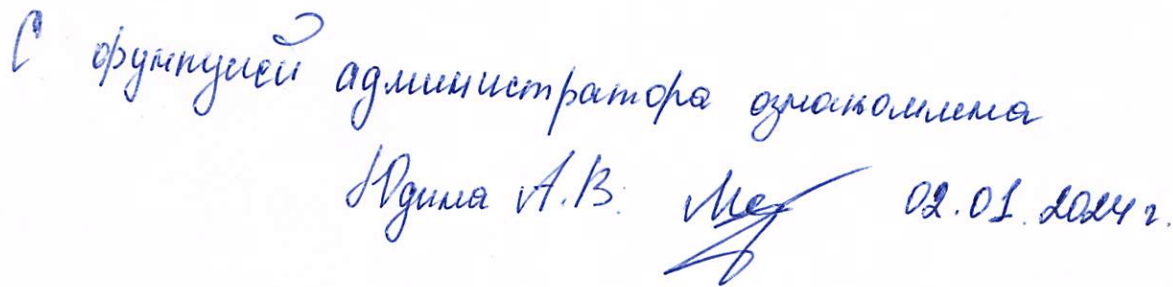 С функцией администратора ознакомлена
Юдина А.В. 02.01.2024 г.